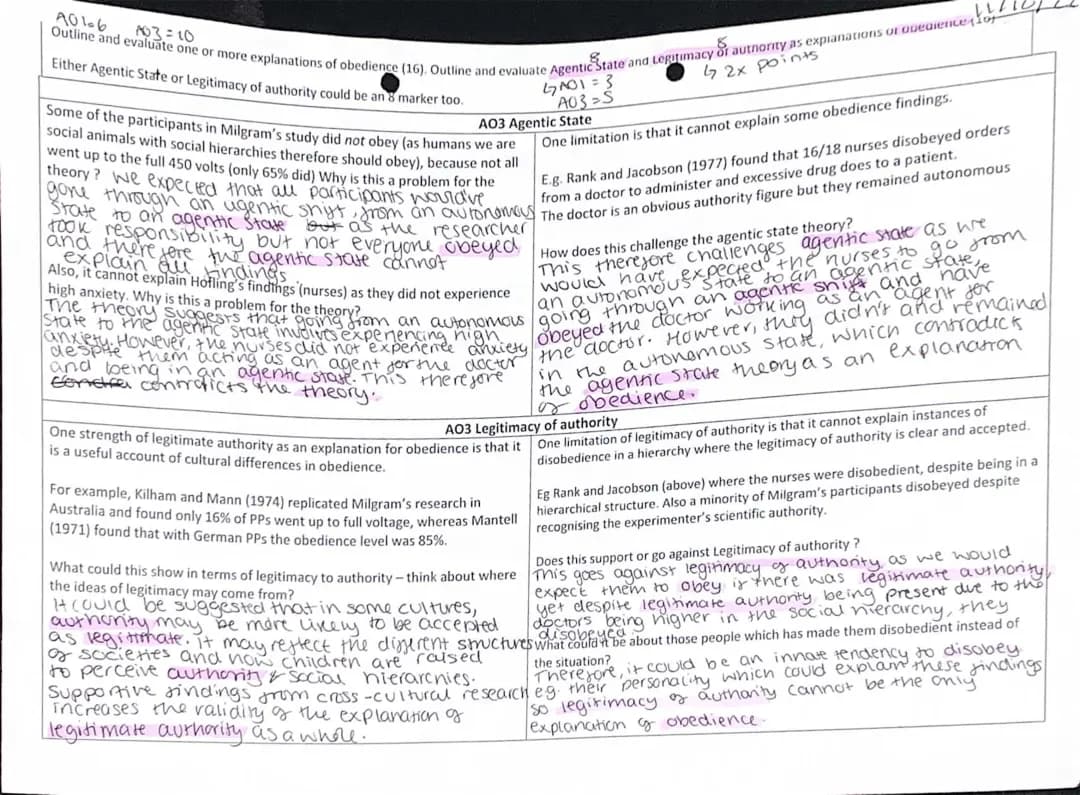 AO1=6 AO3=10
11/10/22
Outline and evaluate one or more explanations of obedience (16). Outline and evaluate Agentic State and Legitimacy of authority as explanations of obedience (16)
8
8
Either Agentic State or Legitimacy of authority could be an 8 marker too.
↳ AO1 = 3
AO3 = 5
↳ 2x points
AO3 Agentic State
Some of the participants in Milgram's study did not obey (as humans we are
social animals with social hierarchies therefore should obey), because not all
went up to the full 450 volts (only 65% did) Why is this a problem for the
theory? We expected that all participants would've
gone through an agentic shift, from an autonomous
state to an agentic state but as the researcher
took responsibility but not everyone obeyed
and therefore the agentic state cannot
explain all findings
Also, it cannot explain Hofling's findings (nurses) as they did not experience
high anxiety. Why is this a problem for the theory?
The theory suggests that going from an autonomous
state to the agentic state involves experiencing high
anxiety. However, the nurses did not experience anxiety
despite them acting as an agent for the doctor
and being in an agentic state. This therefore
contradicts the theory.
One limitation is that it cannot explain some obedience findings.
E.g. Rank and Jacobson (1977) found that 16/18 nurses disobeyed orders
from a doctor to administer and excessive drug does to a patient.
The doctor is an obvious authority figure but they remained autonomous
How does this challenge the agentic state theory?
This therefore challenges agentic state as we
would have expected the nurses to go from
an autonomous state to an agentic state,
going through an agentic shift and have
obeyed the doctor working as an agent for
the doctor. However, they didn't and remained
in the autonomous state, which contradicts
the agentic state theory as an explanation
of obedience.
AO3 Legitimacy of authority
One strength of legitimate authority as an explanation for obedience is that it
is a useful account of cultural differences in obedience.
For example, Kilham and Mann (1974) replicated Milgram's research in
Australia and found only 16% of PPs went up to full voltage, whereas Mantell
(1971) found that with German PPs the obedience level was 85%.
What could this show in terms of legitimacy to authority – think about where
the ideas of legitimacy may come from?
It could be suggested that in some cultures,
authority may be more likely to be accepted
as legitimate. It may reflect the different structures
of societies and how children are raised
to perceive authority & social hierarchies.
Supportive findings from cross-cultural research
increases the validity of the explanation of
legitimate authority as a whole.
One limitation of legitimacy of authority is that it cannot explain instances of
disobedience in a hierarchy where the legitimacy of authority is clear and accepted.
Eg Rank and Jacobson (above) where the nurses were disobedient, despite being in a
hierarchical structure. Also a minority of Milgram's participants disobeyed despite
recognising the experimenter's scientific authority.
Does this support or go against Legitimacy of authority ?
This goes against legitimacy of authority, as we would
expect them to obey if there was legitimate authority,
yet despite legitimate authority being present due to the
doctors being higher in the social hierarchy, they
disobeyed.
What could it be about those people which has made them disobedient instead of
the situation?
Therefore, it could be an innate tendency to disobey
eg. their personality which could explain these findings
so legitimacy of authority cannot be the only
explanation of obedience.